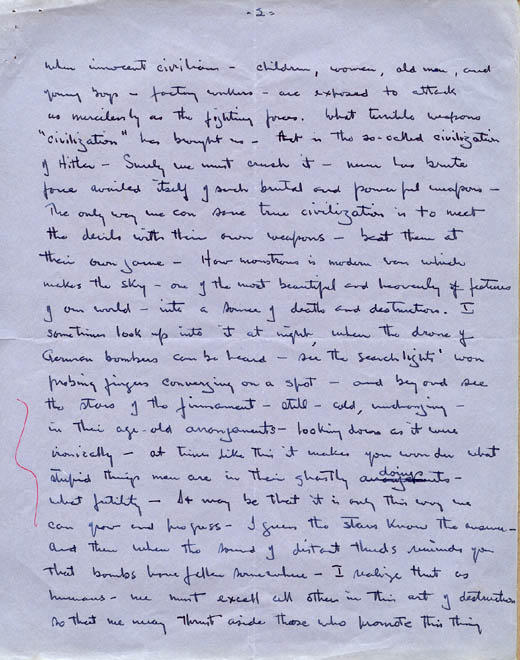 - 2 -
when innocent civilians - children, women, old men, and
young boys - factory workers - are exposed to attack
as mercilessly as the fighting forces. What terrible weapons
"civilization" has brought us - that is the so-called civilization
of Hitler - Surely we must crush it - never has brute
force availed itself of such brutal and powerful weapons -
The only way we can save true civilization is to meet
the devils with their own weapons - beat them at
their own game - How monstrous is modern war which
makes the sky - one of the most beautiful and heavenly of features
of our world - into a source of death and destruction. I
sometimes look up into it at night, when the drone of
German bombers can be heard - see the searchlights' wan
probing fingers converging on a spot - and beyond see
the stars of the firmament - still - cold, unchanging -
in their age-old arrangements - looking down as it were
ironically - at times like this it makes you wonder what
stupid things men are in their ghastly doings -
what futility - It may be that it is only this way we
can grow and progress - I guess the stars know the answer -
And then when the sound of distant thuds reminds you
that bombs have fallen somewhere - I realize that as
humans - we must excell all others in this art of destruction
so that we may thrust aside those who promote this thing